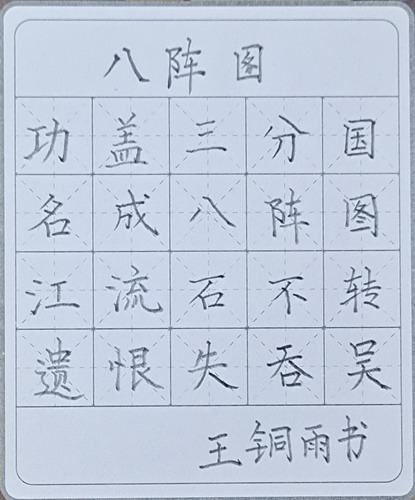 八阵图
功盖三分国
名成八阵图
江流石不转
遗恨失吞吴
王铜雨书